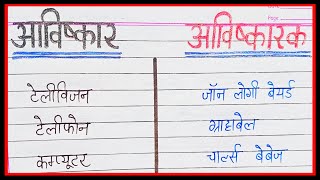 आविष्कार आविष्कारक
टेलीविजन जॉन लोगी बेयर्ड
टेलीफोन ग्राहाबेल
कम्प्यूटर चार्ल्स बेबेज